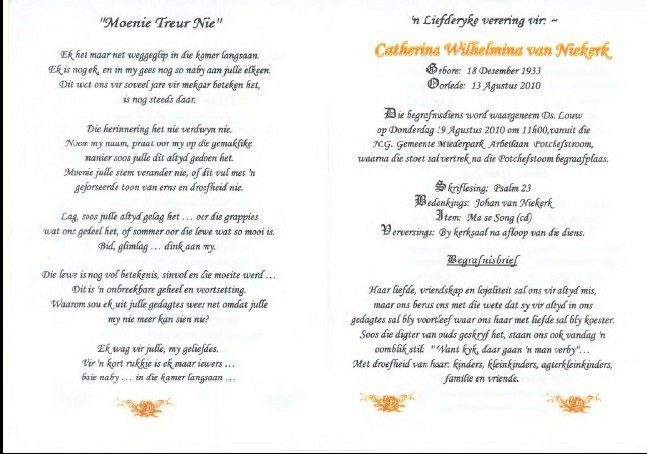 "Moenie Treur Nie"
Ek het maar net weggeglip in die kamer langsaan.
Ek is nog ek, en in my gees nog so naby aan julle elkeen.
Dit wat ons vir soveel jare vir mekaar beteken het,
is nog steeds daar.
Die herinnering het nie verdwyn nie.
Noem my naam, praat oor my op die gemaklike
manier soos julle dit altyd gedoen het.
Moenie julle stem verander nie, of dit vul met 'n
geforseerde toon van erns en droefheid nie.
Lag, soos julle altyd gelag het ... oor die grappies
wat ons gedeel het, of sommer oor die lewe wat so mooi is.
Bid, glimlag ... dink aan my.
Die lewe is nog vol betekenis, sinvol en die moeite werd ...
Dit is 'n onbreekbare geheel en voortsetting.
Waarom sou ek uit julle gedagtes wees net omdat julle
my nie meer kan sien nie?
Ek wag vir julle, my geliefdes.
Vir 'n kort rukkie is ek maar iewers ...
baie naby ... in die kamer langsaan ...
'n Liefderyke verering vir: ~
Catherina Wilhelmina van Niekerk
Gebore: 18 Desember 1933
Oorlede: 13 Augustus 2010
Die begrafnisdiens word waargeneem Ds. Louw
op Donderdag 19 Agustus 2010 om 11h00, vanuit die
N.G. Gemeente Miederpark Arbeilaan Potchefstroom,
waarna die stoet sal vertrek na die Potchefstoom begraafplaas.
Skriflesing: Psalm 23
Bedenkings: Johan van Niekerk
Item: Ma se Song (cd)
Verversings: By kerksaal na afloop van die diens.
Begrafnisbrief
Haar liefde, vriendskap en lojaliteit sal ons vir altyd mis,
maar ons berus ons met die wete dat sy vir altyd in ons
gedagtes sal bly voortleef waar ons haar met liefde sal bly koester.
Soos die digter van ouds geskryf het, staan ons ook vandag 'n
oomblik stil: "Want kyk, daar gaan 'n man verby"...
Met droefheid van haar: kinders, kleinkinders, agterkleinkinders,
familie en vriende.